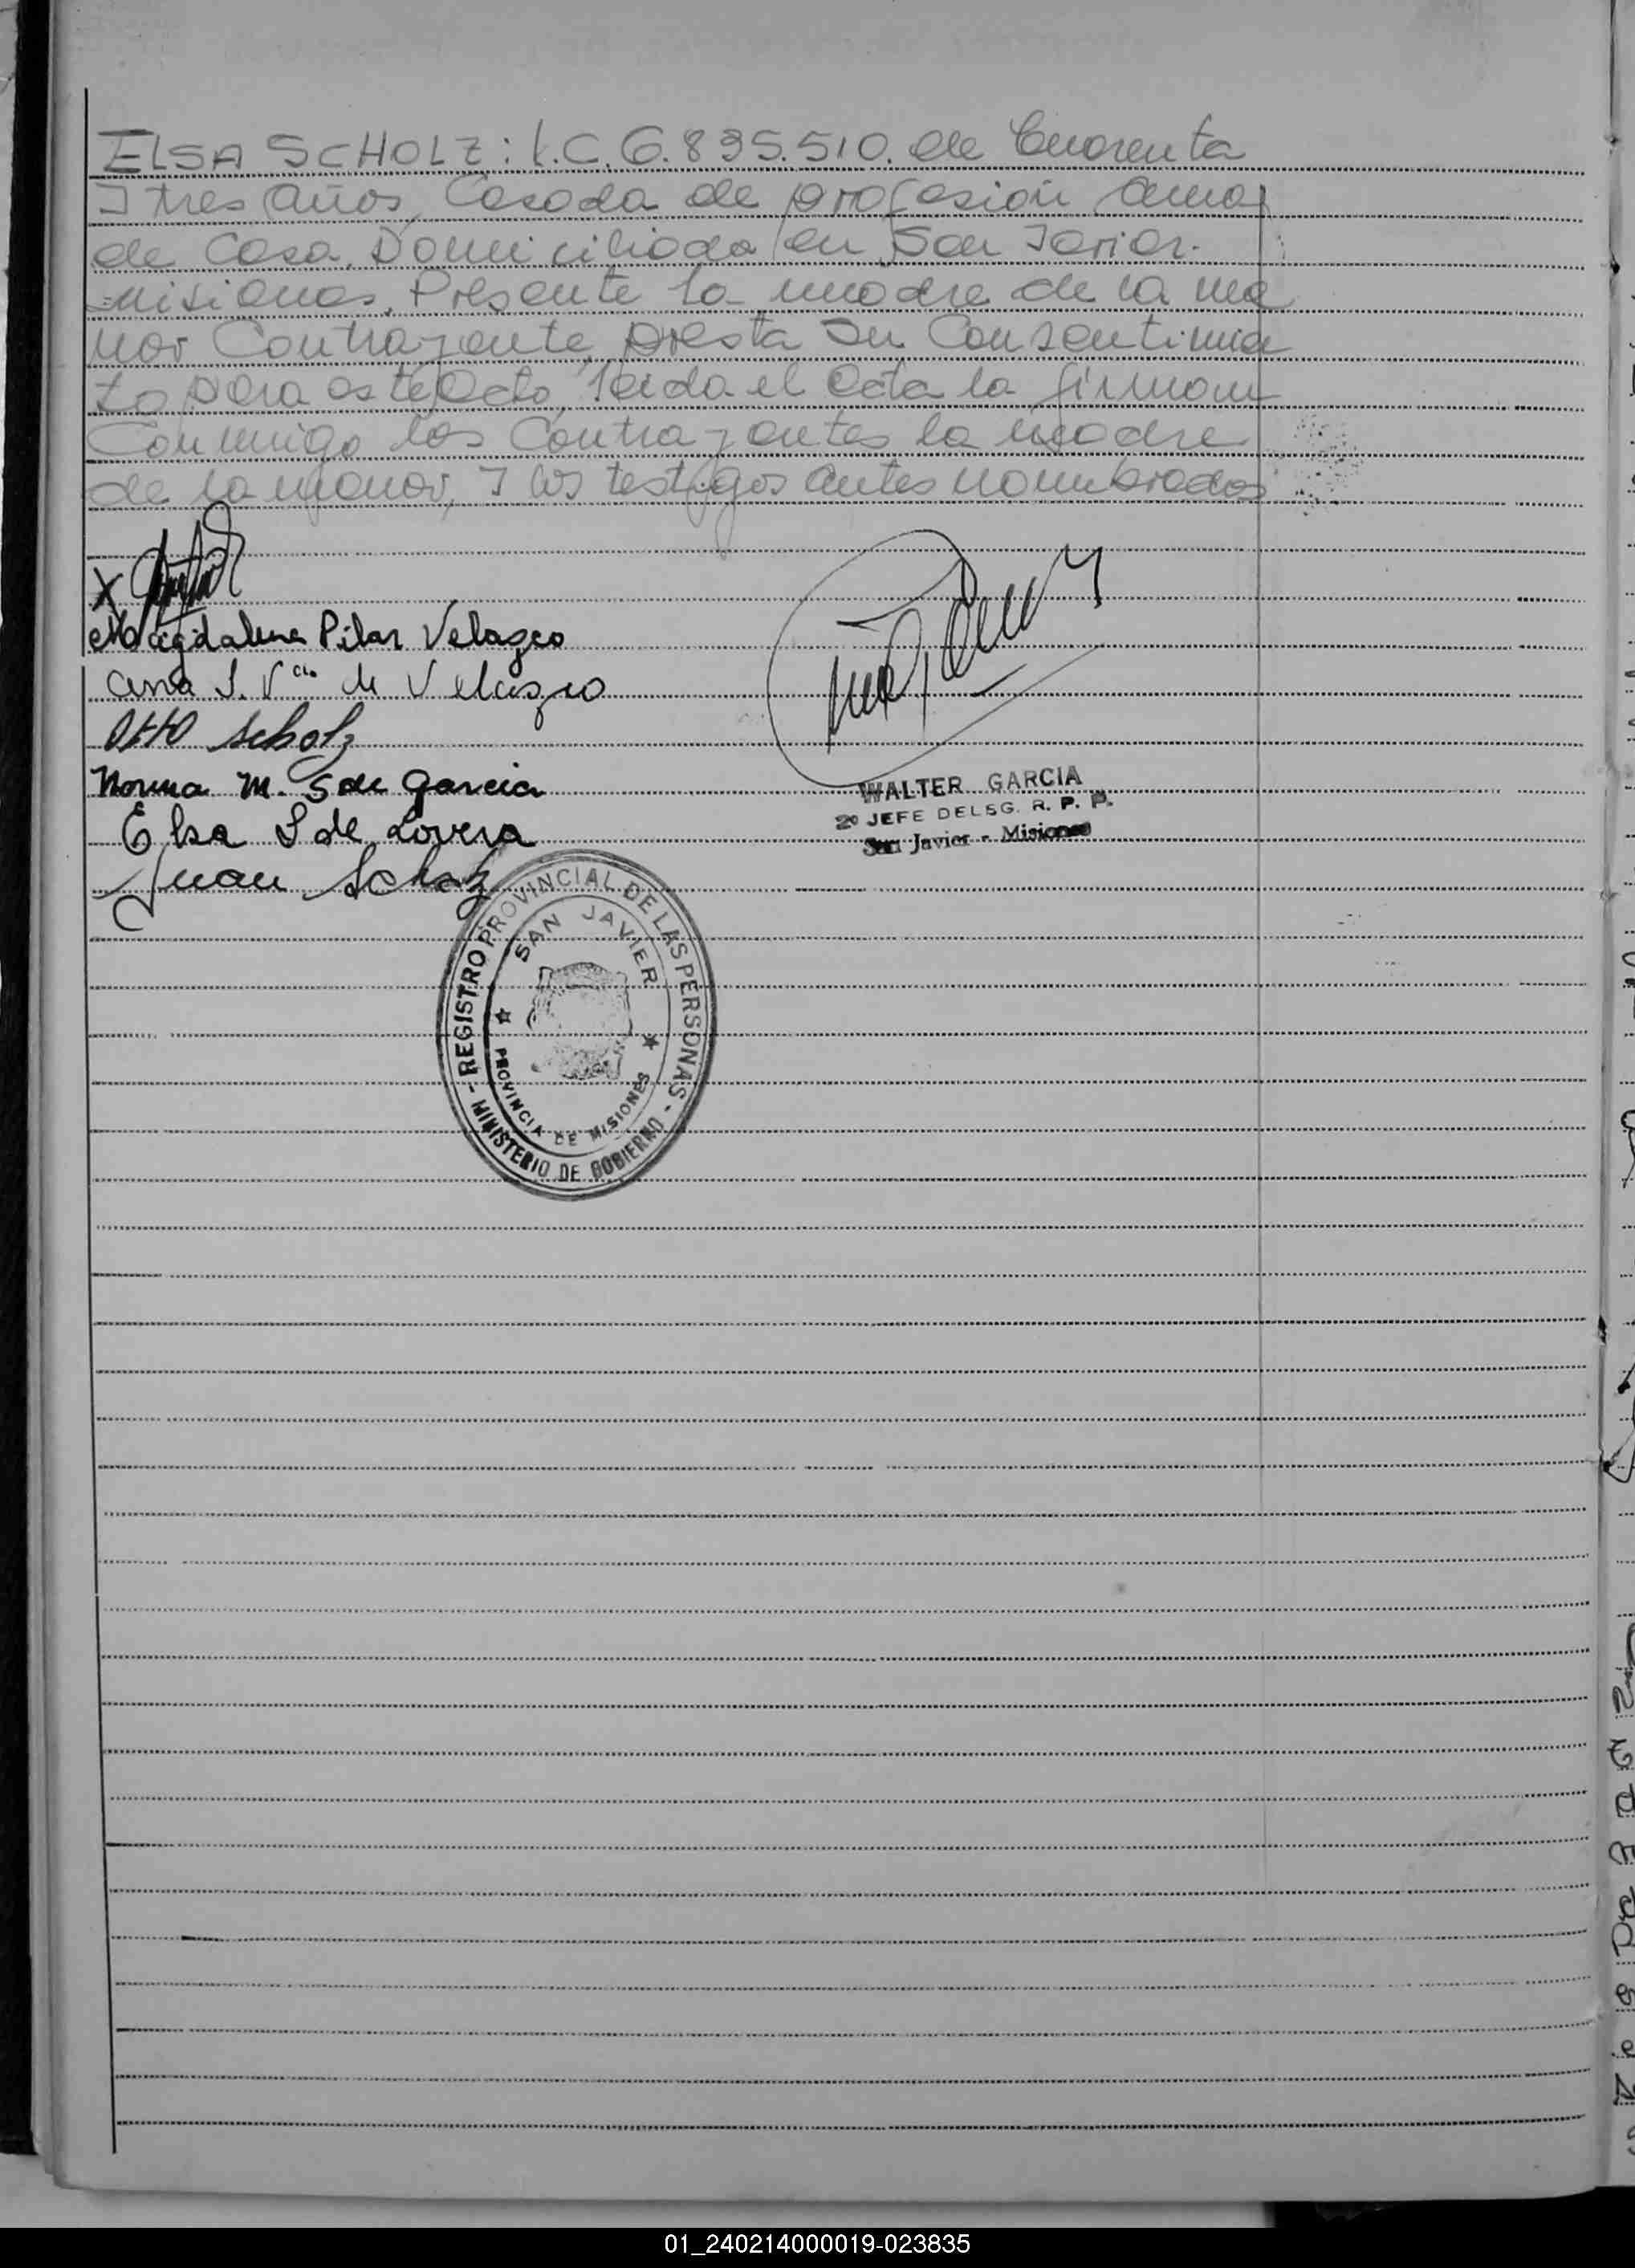 ELSA SCHOLZ: l.C. 6.835.510. de Cuarenta
I tres años, Casada de profesión ama
de Casa, Domiciliada en San Javier.
misiones, Presente la madre de la me
nor Contrayente, presta su Consentimie
to para este Acto, leida el acta la firman
Conmigo los Contrayentes la madre
de la menor, I los testigos antes nombrados
X
Magdalena Pilar Velazco
Ana S. Vda de Velazco
Otto Scholz
Norma M. S de Garcia
Elsa S de Lovera
Juan Scholz
WALTER GARCIA
2º JEFE DELEG. R. P. P.
San Javier - Misiones
- REGISTRO PROVINCIAL DE LAS PERSONAS -
SAN JAVIER
PROVINCIA DE MISIONES
MINISTERIO DE GOBIERNO
01_240214000019-023835